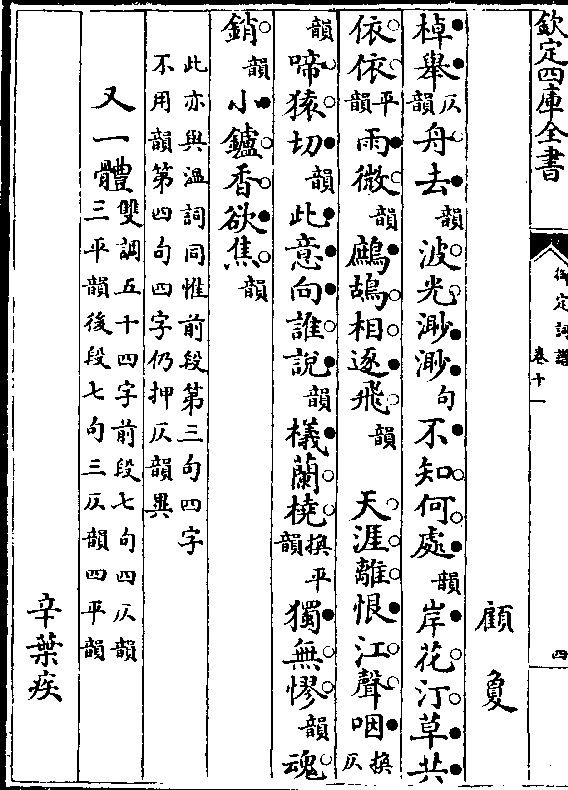 欽定四庫全書
御定詞譜
卷十一
四
顧夐
棹舉仄韻舟去韻波光渺渺句不知何處韻岸花汀草共
依依平韻雨微韻鷓鴣相逐飛韻 天涯離恨江聲咽換仄
韻啼猿切韻此意向誰說韻檥蘭橈換平韻獨無憀韻魂
銷韻小鑪香欲焦韻
此亦與溫詞同惟前段第三句四字
不用韻第四句四字仍押仄韻異
又一體雙調五十四字前段七句四仄韻
三平韻後段七句三仄韻四平韻
辛棄疾